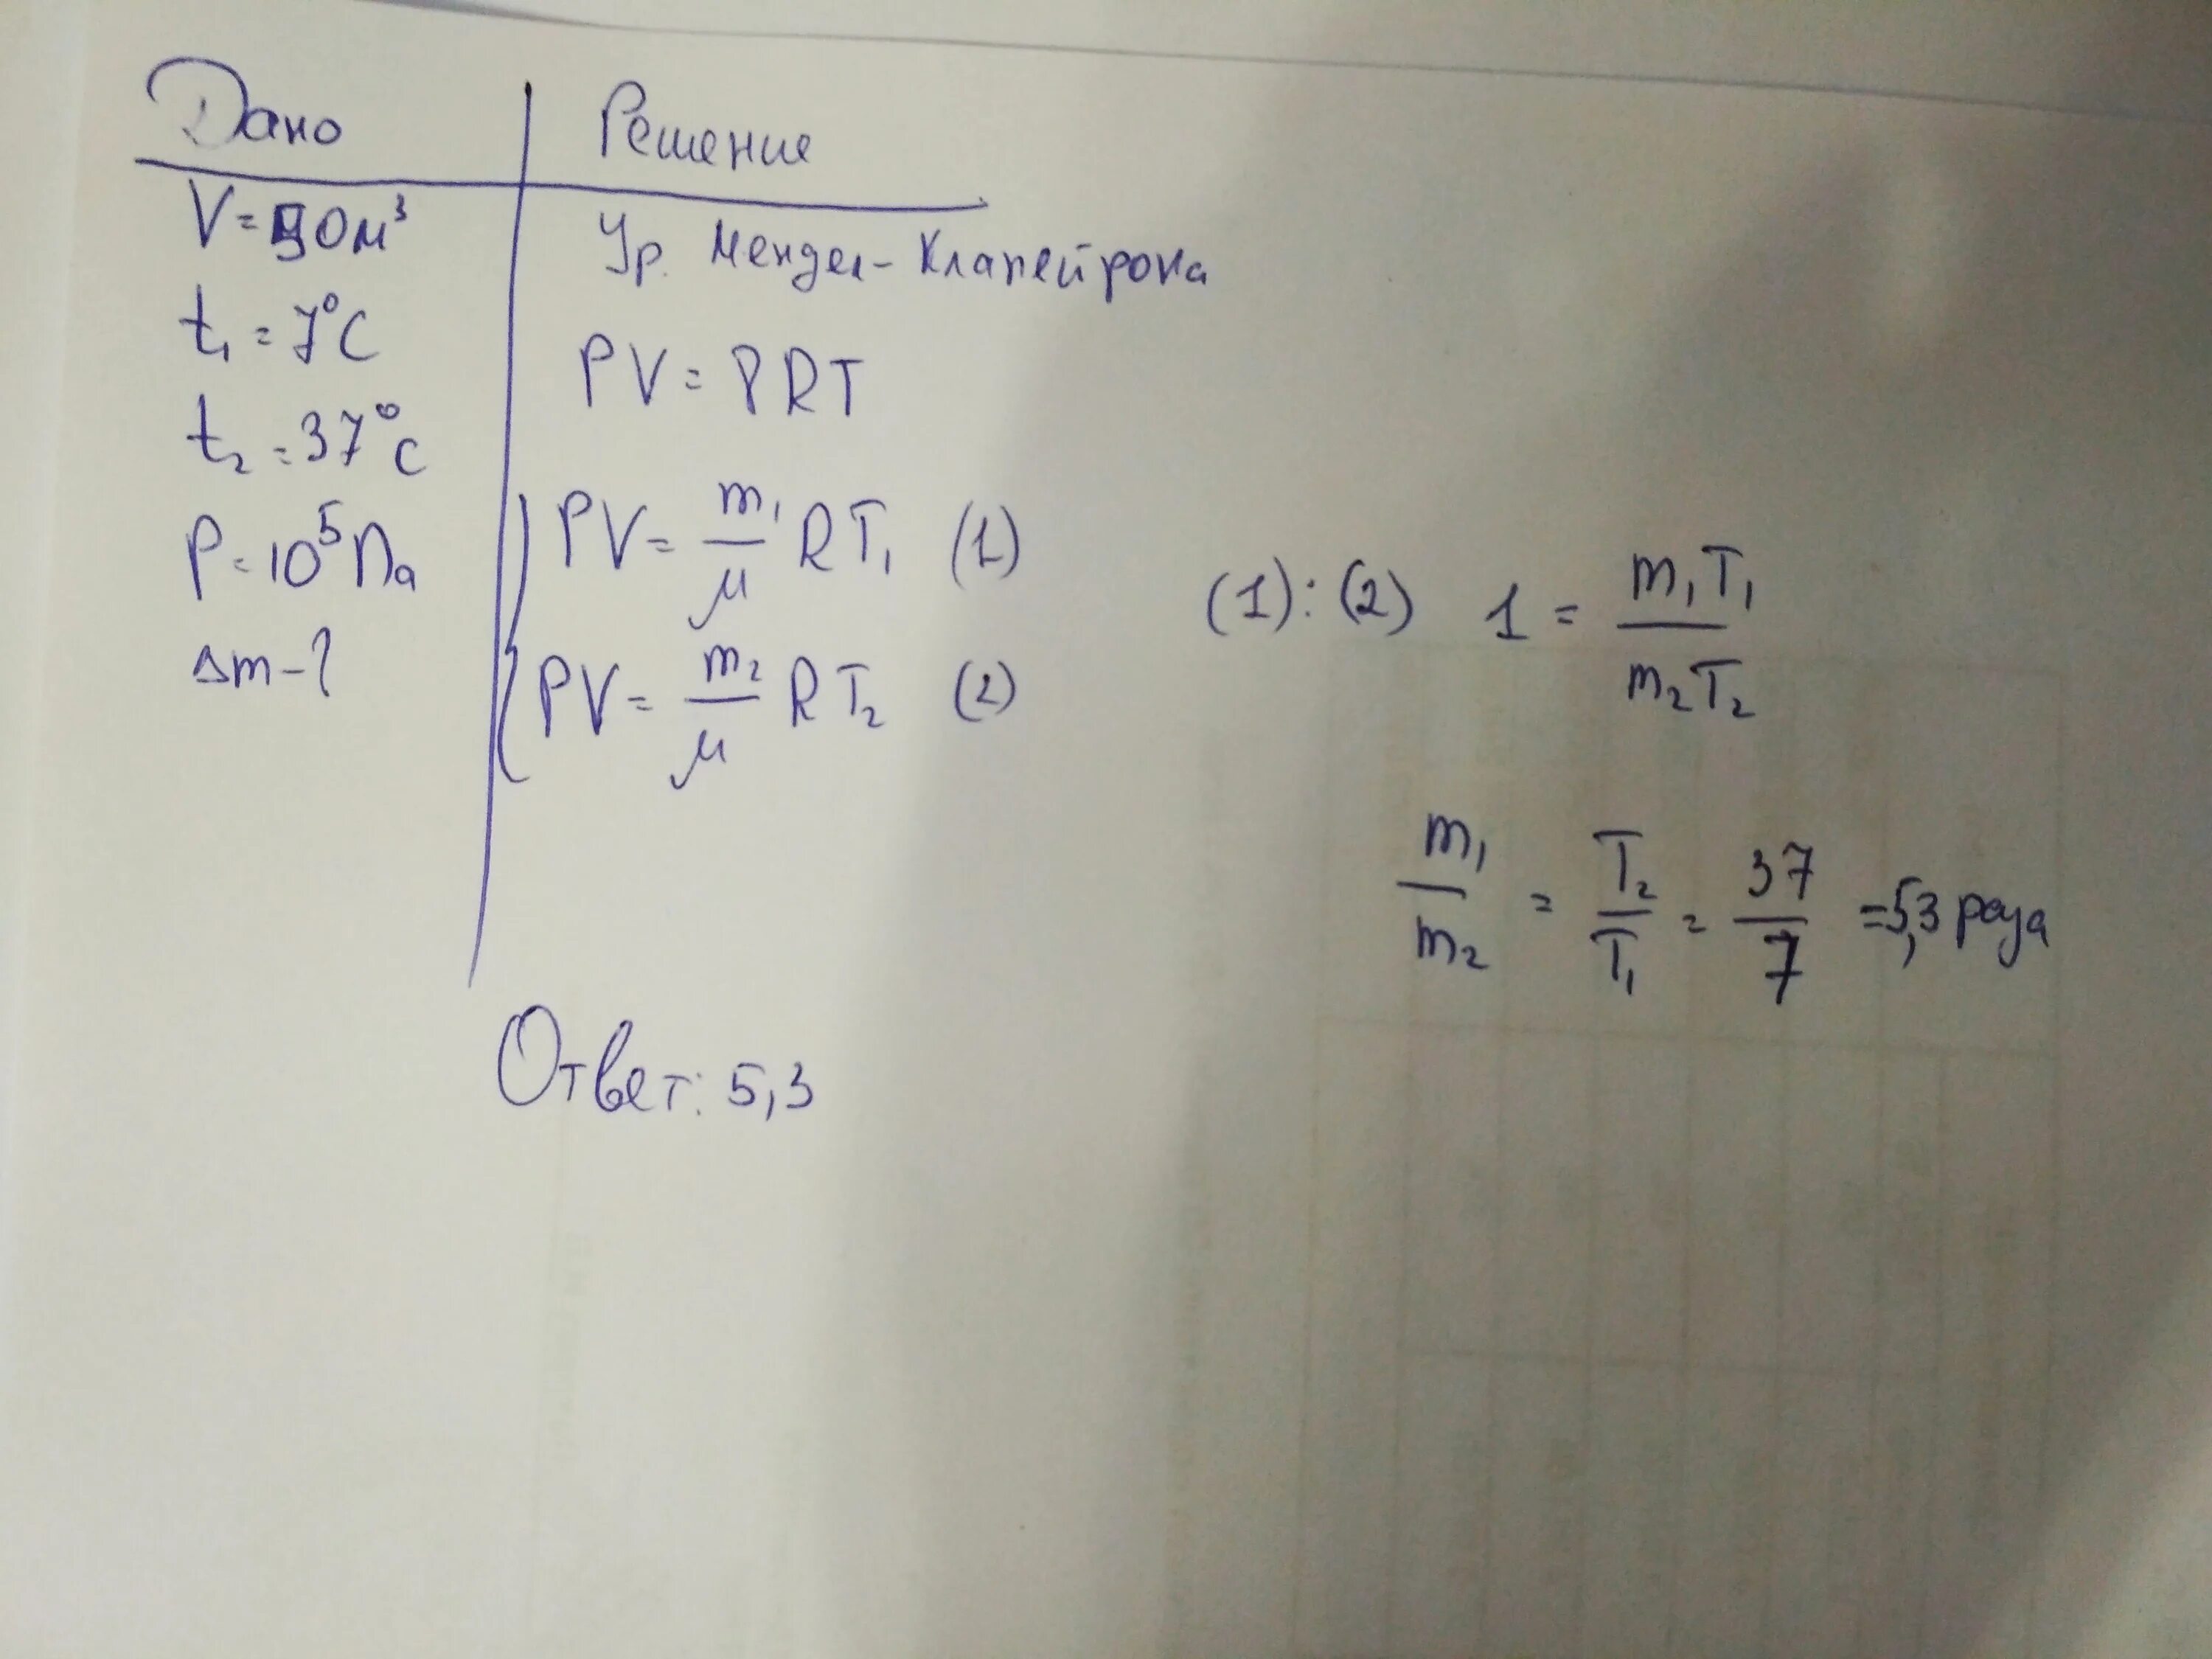 Дано
V = 90м³
t₁ = 7°C
t₂ = 37°C
P = 10⁵ Па
Δm - ?
Решение
Ур. Мендел-Клапейрона
PV = PRT
PV = m₁/μ RT₁ (1)
PV = m₂/μ RT₂ (2)
(1):(2) 1 = m₁T₁/m₂T₂
m₁/m₂ = T₂/T₁ = 37/7 = 5,3 раза
Ответ: 5,3